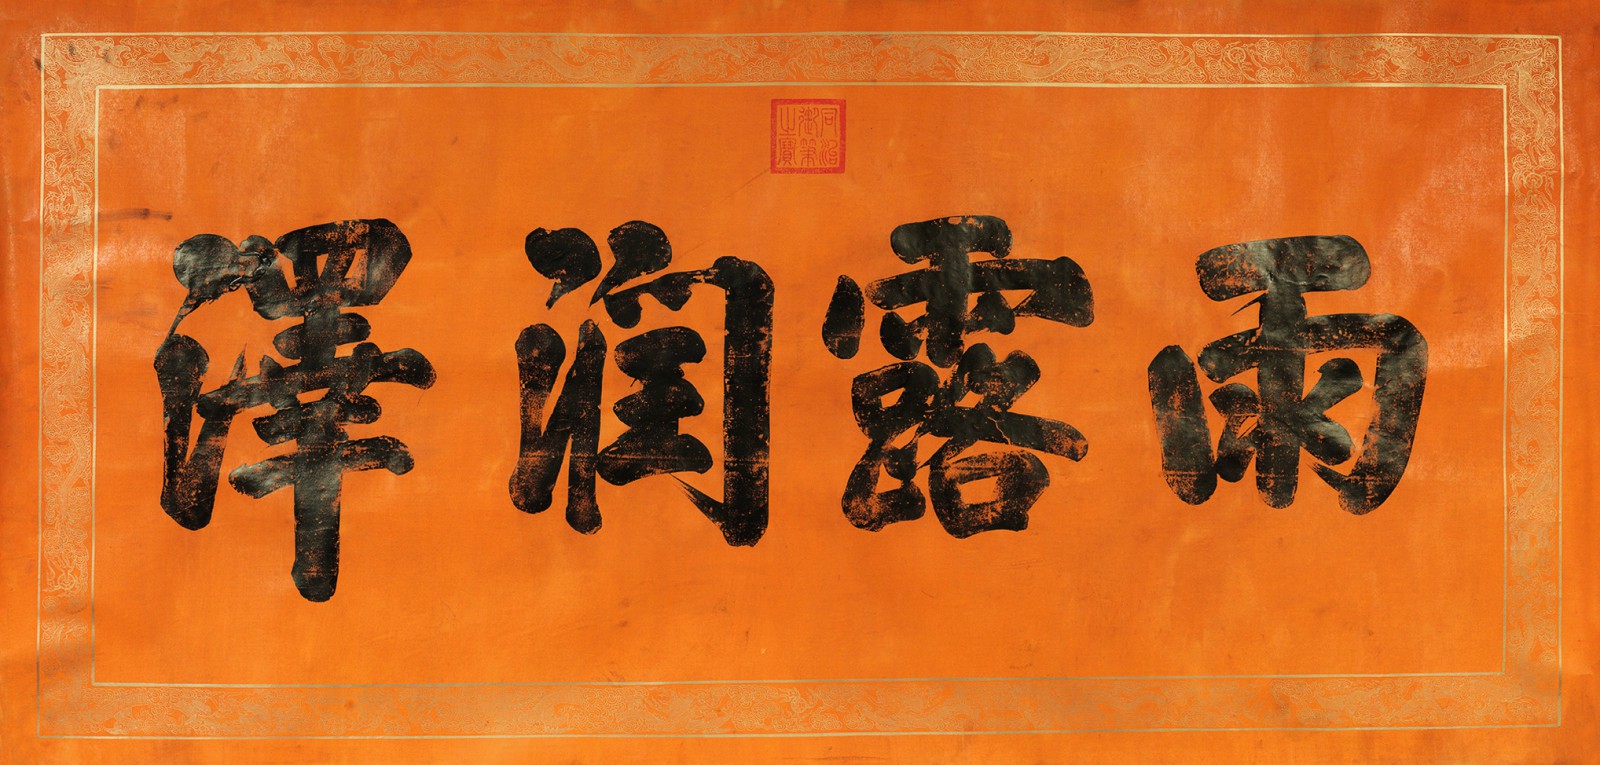 同治
御筆
之寶
雨露潤澤